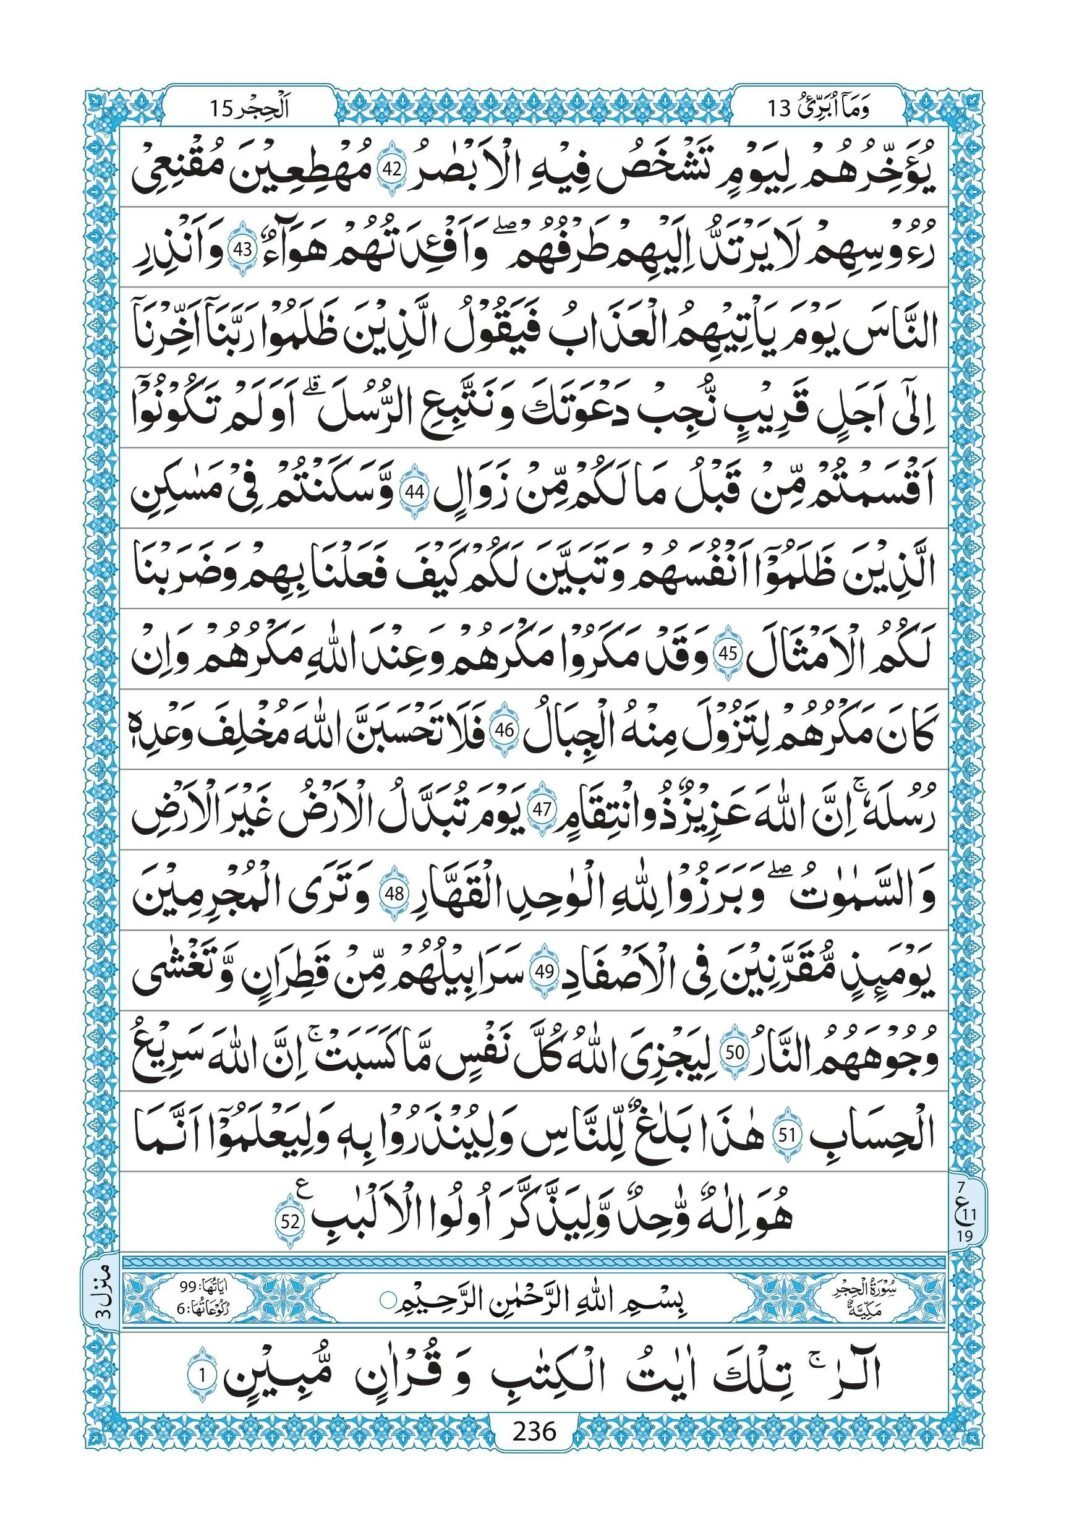 وَمَآ اُبَرِّئُ 13
اَلْحِجْر 15
يُؤَخِّرُهُمْ لِيَوْمٍ تَشْخَصُ فِيْهِ الْاَبْصٰرُ 42 مُهْطِعِيْنَ مُقْنِعِيْ
رُءُوْسِهِمْ لَا يَرْتَدُّ اِلَيْهِمْ طَرْفُهُمْ ۖ وَاَفْئِدَتُهُمْ هَوَآءٌ 43 وَاَنْذِرِ
النَّاسَ يَوْمَ يَاْتِيْهِمُ الْعَذَابُ فَيَقُوْلُ الَّذِيْنَ ظَلَمُوْا رَبَّنَآ اَخِّرْنَآ
اِلٰٓى اَجَلٍ قَرِيْبٍ نُّجِبْ دَعْوَتَكَ وَنَتَّبِعِ الرُّسُلَ ۗ اَوَلَمْ تَكُوْنُوْٓا
اَقْسَمْتُمْ مِّنْ قَبْلُ مَا لَكُمْ مِّنْ زَوَالٍ 44 وَّسَكَنْتُمْ فِيْ مَسٰكِنِ
الَّذِيْنَ ظَلَمُوْٓا اَنْفُسَهُمْ وَتَبَيَّنَ لَكُمْ كَيْفَ فَعَلْنَا بِهِمْ وَضَرَبْنَا
لَكُمُ الْاَمْثَالَ 45 وَقَدْ مَكَرُوْا مَكْرَهُمْ وَعِنْدَ اللّٰهِ مَكْرُهُمْ وَاِنْ
كَانَ مَكْرُهُمْ لِتَزُوْلَ مِنْهُ الْجِبَالُ 46 فَلَا تَحْسَبَنَّ اللّٰهَ مُخْلِفَ وَعْدِهٖ
رُسُلَهٗ ۚ اِنَّ اللّٰهَ عَزِيْزٌ ذُو انْتِقَامٍ 47 يَوْمَ تُبَدَّلُ الْاَرْضُ غَيْرَ الْاَرْضِ
وَالسَّمٰوٰتُ ۖ وَبَرَزُوْا لِلّٰهِ الْوٰحِدِ الْقَهَّارِ 48 وَتَرَى الْمُجْرِمِيْنَ
يَوْمَئِذٍ مُّقَرَّنِيْنَ فِى الْاَصْفَادِ 49 سَرَابِيْلُهُمْ مِّنْ قَطِرَانٍ وَّتَغْشٰى
وُجُوْهَهُمُ النَّارُ 50 لِيَجْزِيَ اللّٰهُ كُلَّ نَفْسٍ مَّا كَسَبَتْ ۚ اِنَّ اللّٰهَ سَرِيْعُ
الْحِسَابِ 51 هٰذَا بَلٰغٌ لِّلنَّاسِ وَلِيُنْذَرُوْا بِهٖ وَلِيَعْلَمُوْٓا اَنَّمَا
هُوَ اِلٰهٌ وّٰحِدٌ وَّلِيَذَّكَّرَ اُولُوا الْاَلْبٰبِ ع 52
7
ع 11
19
منزل 3
سُوْرَةُ الْحِجْرِ
مَكِّيَّةٌ
بِسْمِ اللّٰهِ الرَّحْمٰنِ الرَّحِيْمِ
اٰيَاتُهَا: 99
رُكُوْعَاتُهَا: 6
الٓرٰ ۚ تِلْكَ اٰيٰتُ الْكِتٰبِ وَقُرْاٰنٍ مُّبِيْنٍ 1
236